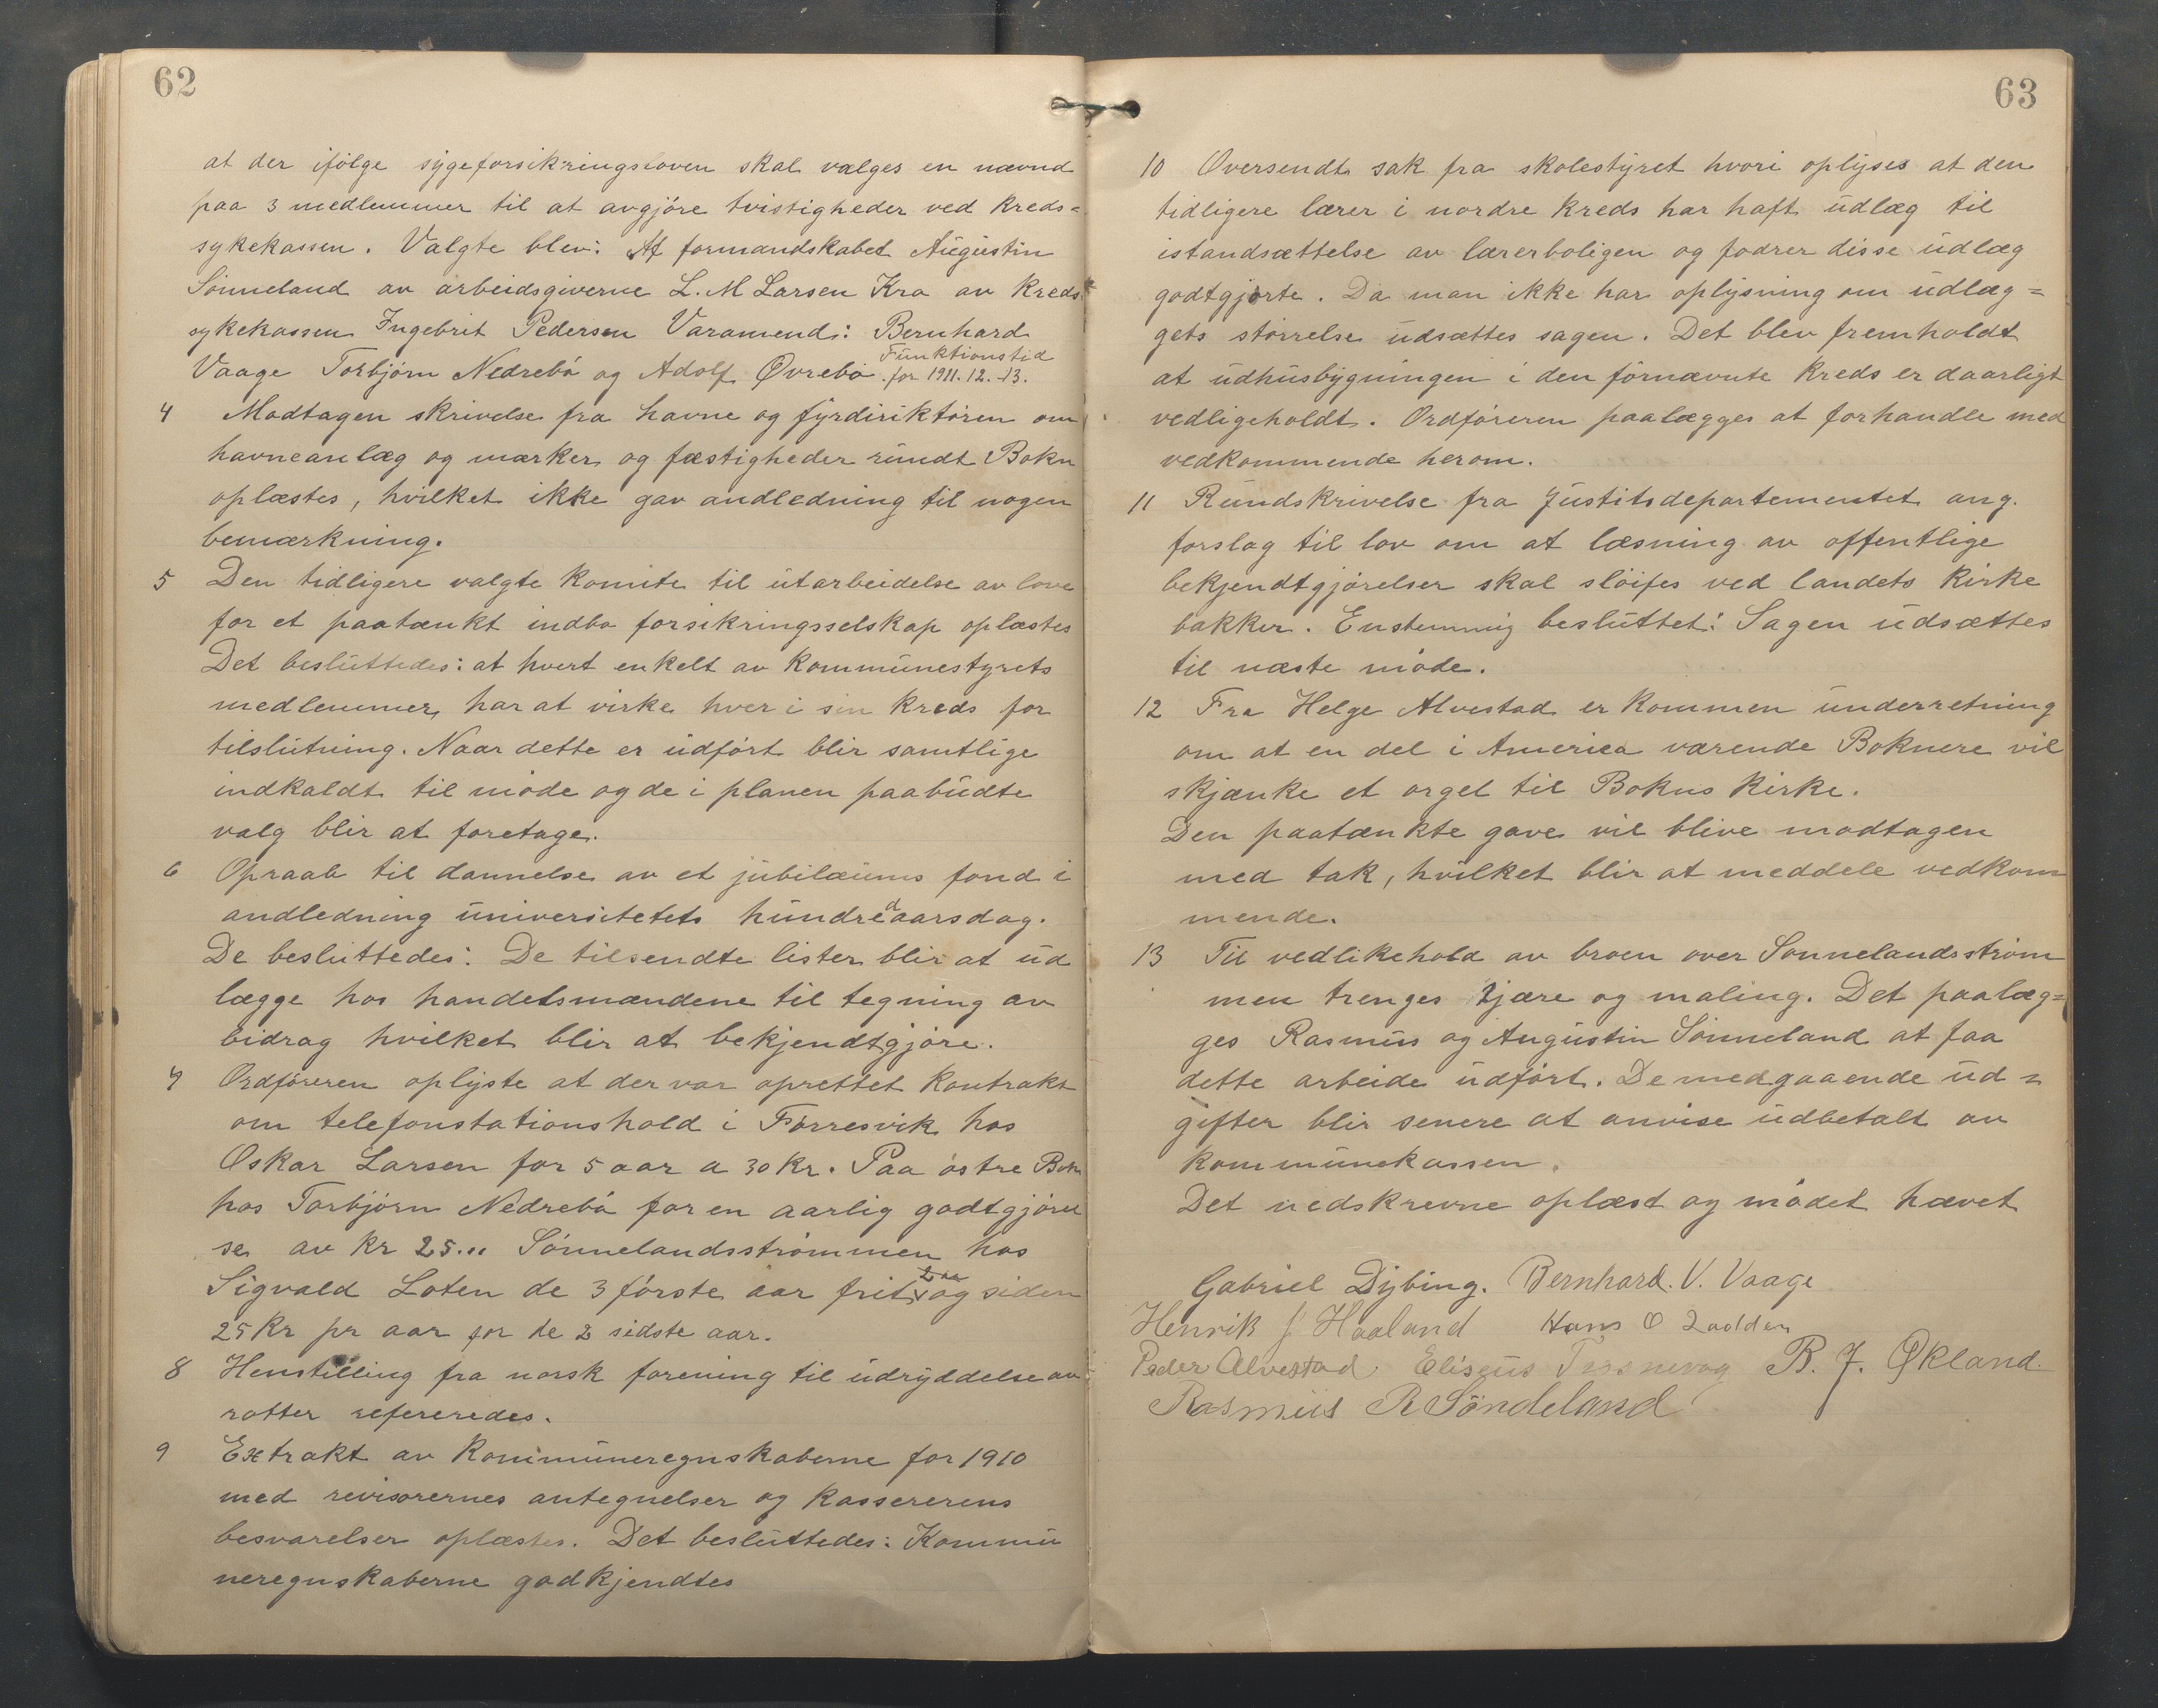 62
at der ifölge sygeforsikringsloven skal vælges en nævnd
paa 3 medlemmer til at avgjöre tvistigheder ved kreds=
sykekassen. Valgte blev: Af formandskabet Augustin
Sönneland av arbeidsgiverne L. M Larsen Kro av Kreds
sykekassen Ingebrit Pedersen Varamend: Bernhard
Vaage Torbjörn Nedrebö og Adolf Øvrebö. Funktionstid
for 1911.12.-13.
4 Modtagen skrivelse fra havne og fyrdiriktören om
havneanlæg og mærker og fæstigheder rundt Bokn
oplæstes, hvilket ikke gav andledning til nogen
bemærkning.
5 Den tidligere valgte komite til utarbeidelse av love
for et paatænkt indbo forsikringsselskap oplæstes
Det besluttedes: at hvert enkelt av kommunestyrets
medlemmer har at virke hver i sin kreds for
tilslutning. Naar dette er udfört blir samtlige
indkaldt til möde og de i planen paabudte
valg blir at foretage.
6 Opraab til dannelse av et jubilæums fond i
andledning universitetets hundredaarsdag.
De besluttedes: De tilsendte lister blir at ud
lægge hos handelsmændene til tegning av
bidrag hvilket blir at bekjendtgjöre.
7 Ordföreren oplyste at der var oprettet kontrakt
om telefonstationshold i Förresvik hos
Oskar Larsen for 5 aar a 30 kr. Paa östre Bokn
hos Torbjörn Nedrebö for en aarlig godtgjörel
se av kr 25.,, Sönnelandsströmmen hos
Sigvald Loten de 3 förste aar frit og siden
25 Kr pr aar for de 2 sidste aar.
8 Henstilling fra norsk forening til udryddelse av
rotter refereredes.
9 Extrakt av Kommuneregnskaberne for 1910
med revisorernes antegnelser og kassererens
besvarelser oplæstes. Det besluttedes: Kommu
neregnskaberne godkjendtes
63
10 Oversendt sak fra skolestyret hvori oplyses at den
tidligere lærer i nordre kreds har haft udlæg til
istandsættelse av lærerboligen og fodrer disse udlæg
godtgjorte. Da man ikke har oplysning om udlæg=
gets störrelse udsættes sagen. Det blev fremholdt
at udhusbygningen i den förnævnte kreds er daarligt
vedligeholdt. Ordföreren paalægges at forhandle med
vedkommende herom.
11 Rundskrivelse fra Justitsdepartementet ang.
forslag til lov om at læsning av offentlige
bekjendtgjörelser skal slöifes ved landets kirke
bakker. Enstemmig besluttet: Sagen udsættes
til næste möde.
12 Fra Helge Alvestad er kommen underretning
om at en del i America værende Boknere vil
skjænke et orgel til Bokns kirke.
Den paatænkte gave vil blive modtagen
med tak, hvilket blir at meddele vedkom
mende.
13 Til vedlikehold av broen over Sönnelandsström
men trenges tjære og maling. Det paalæg=
ges Rasmus og Augustin Sönneland at faa
dette arbeide udfört. De medgaaende ud=
gifter blir senere at anvise udbetalt av
kommunekassen.
Det nedskrevne oplæst og mödet hævet
Gabriel Dybing. Bernhard. V. Vaage
Henrik J Haaland Hans O Lodden
Peder Alvestad Eliseus B. J. Økland.
Rasmus R Söndeland